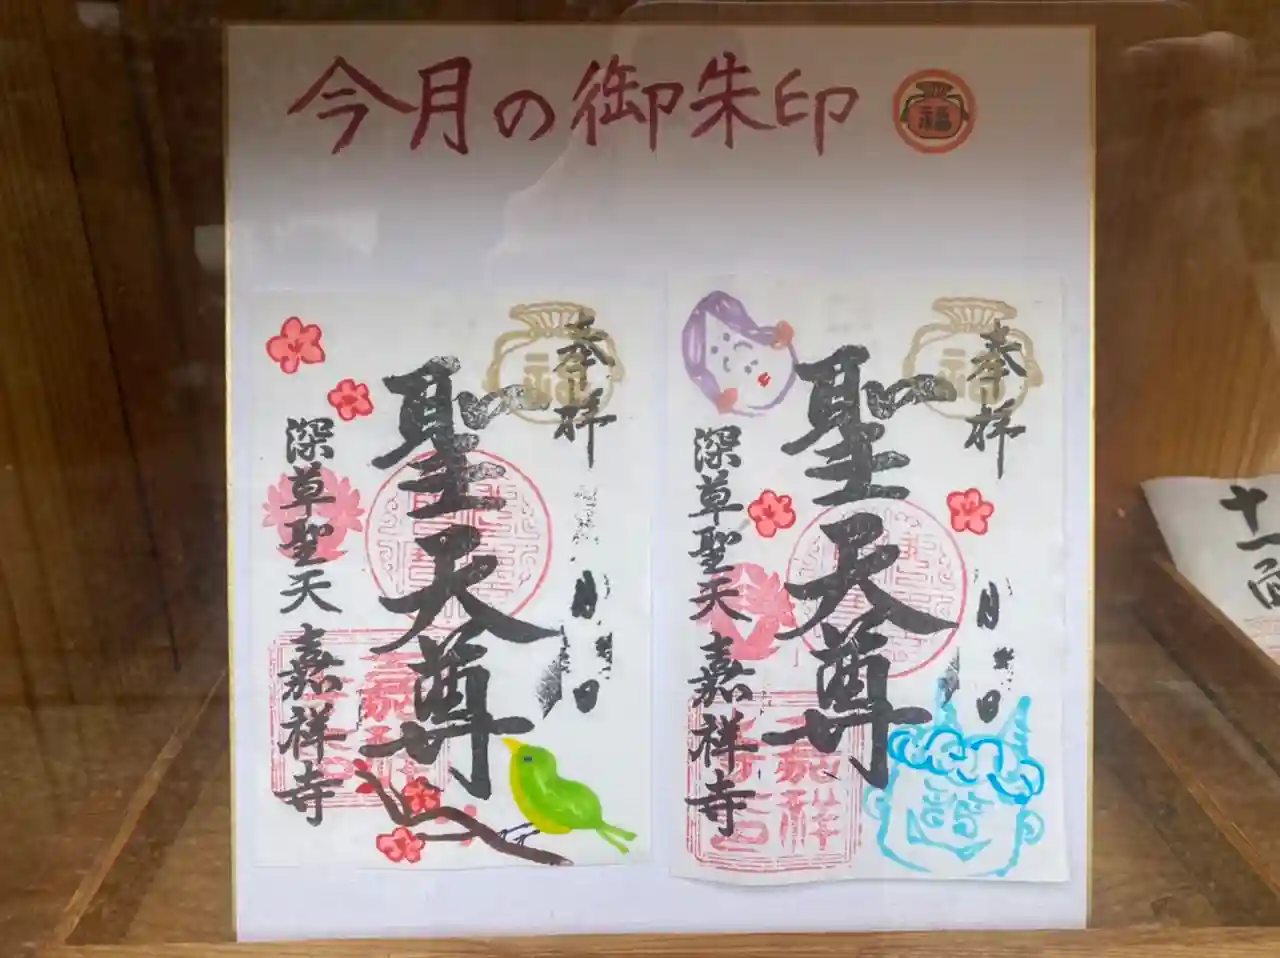 今月の御朱印
福
奉拝
福
聖天尊
月
日
深草聖天 嘉祥寺
奉拝
福
聖天尊
月
日
深草聖天 嘉祥寺
嘉祥
十一面